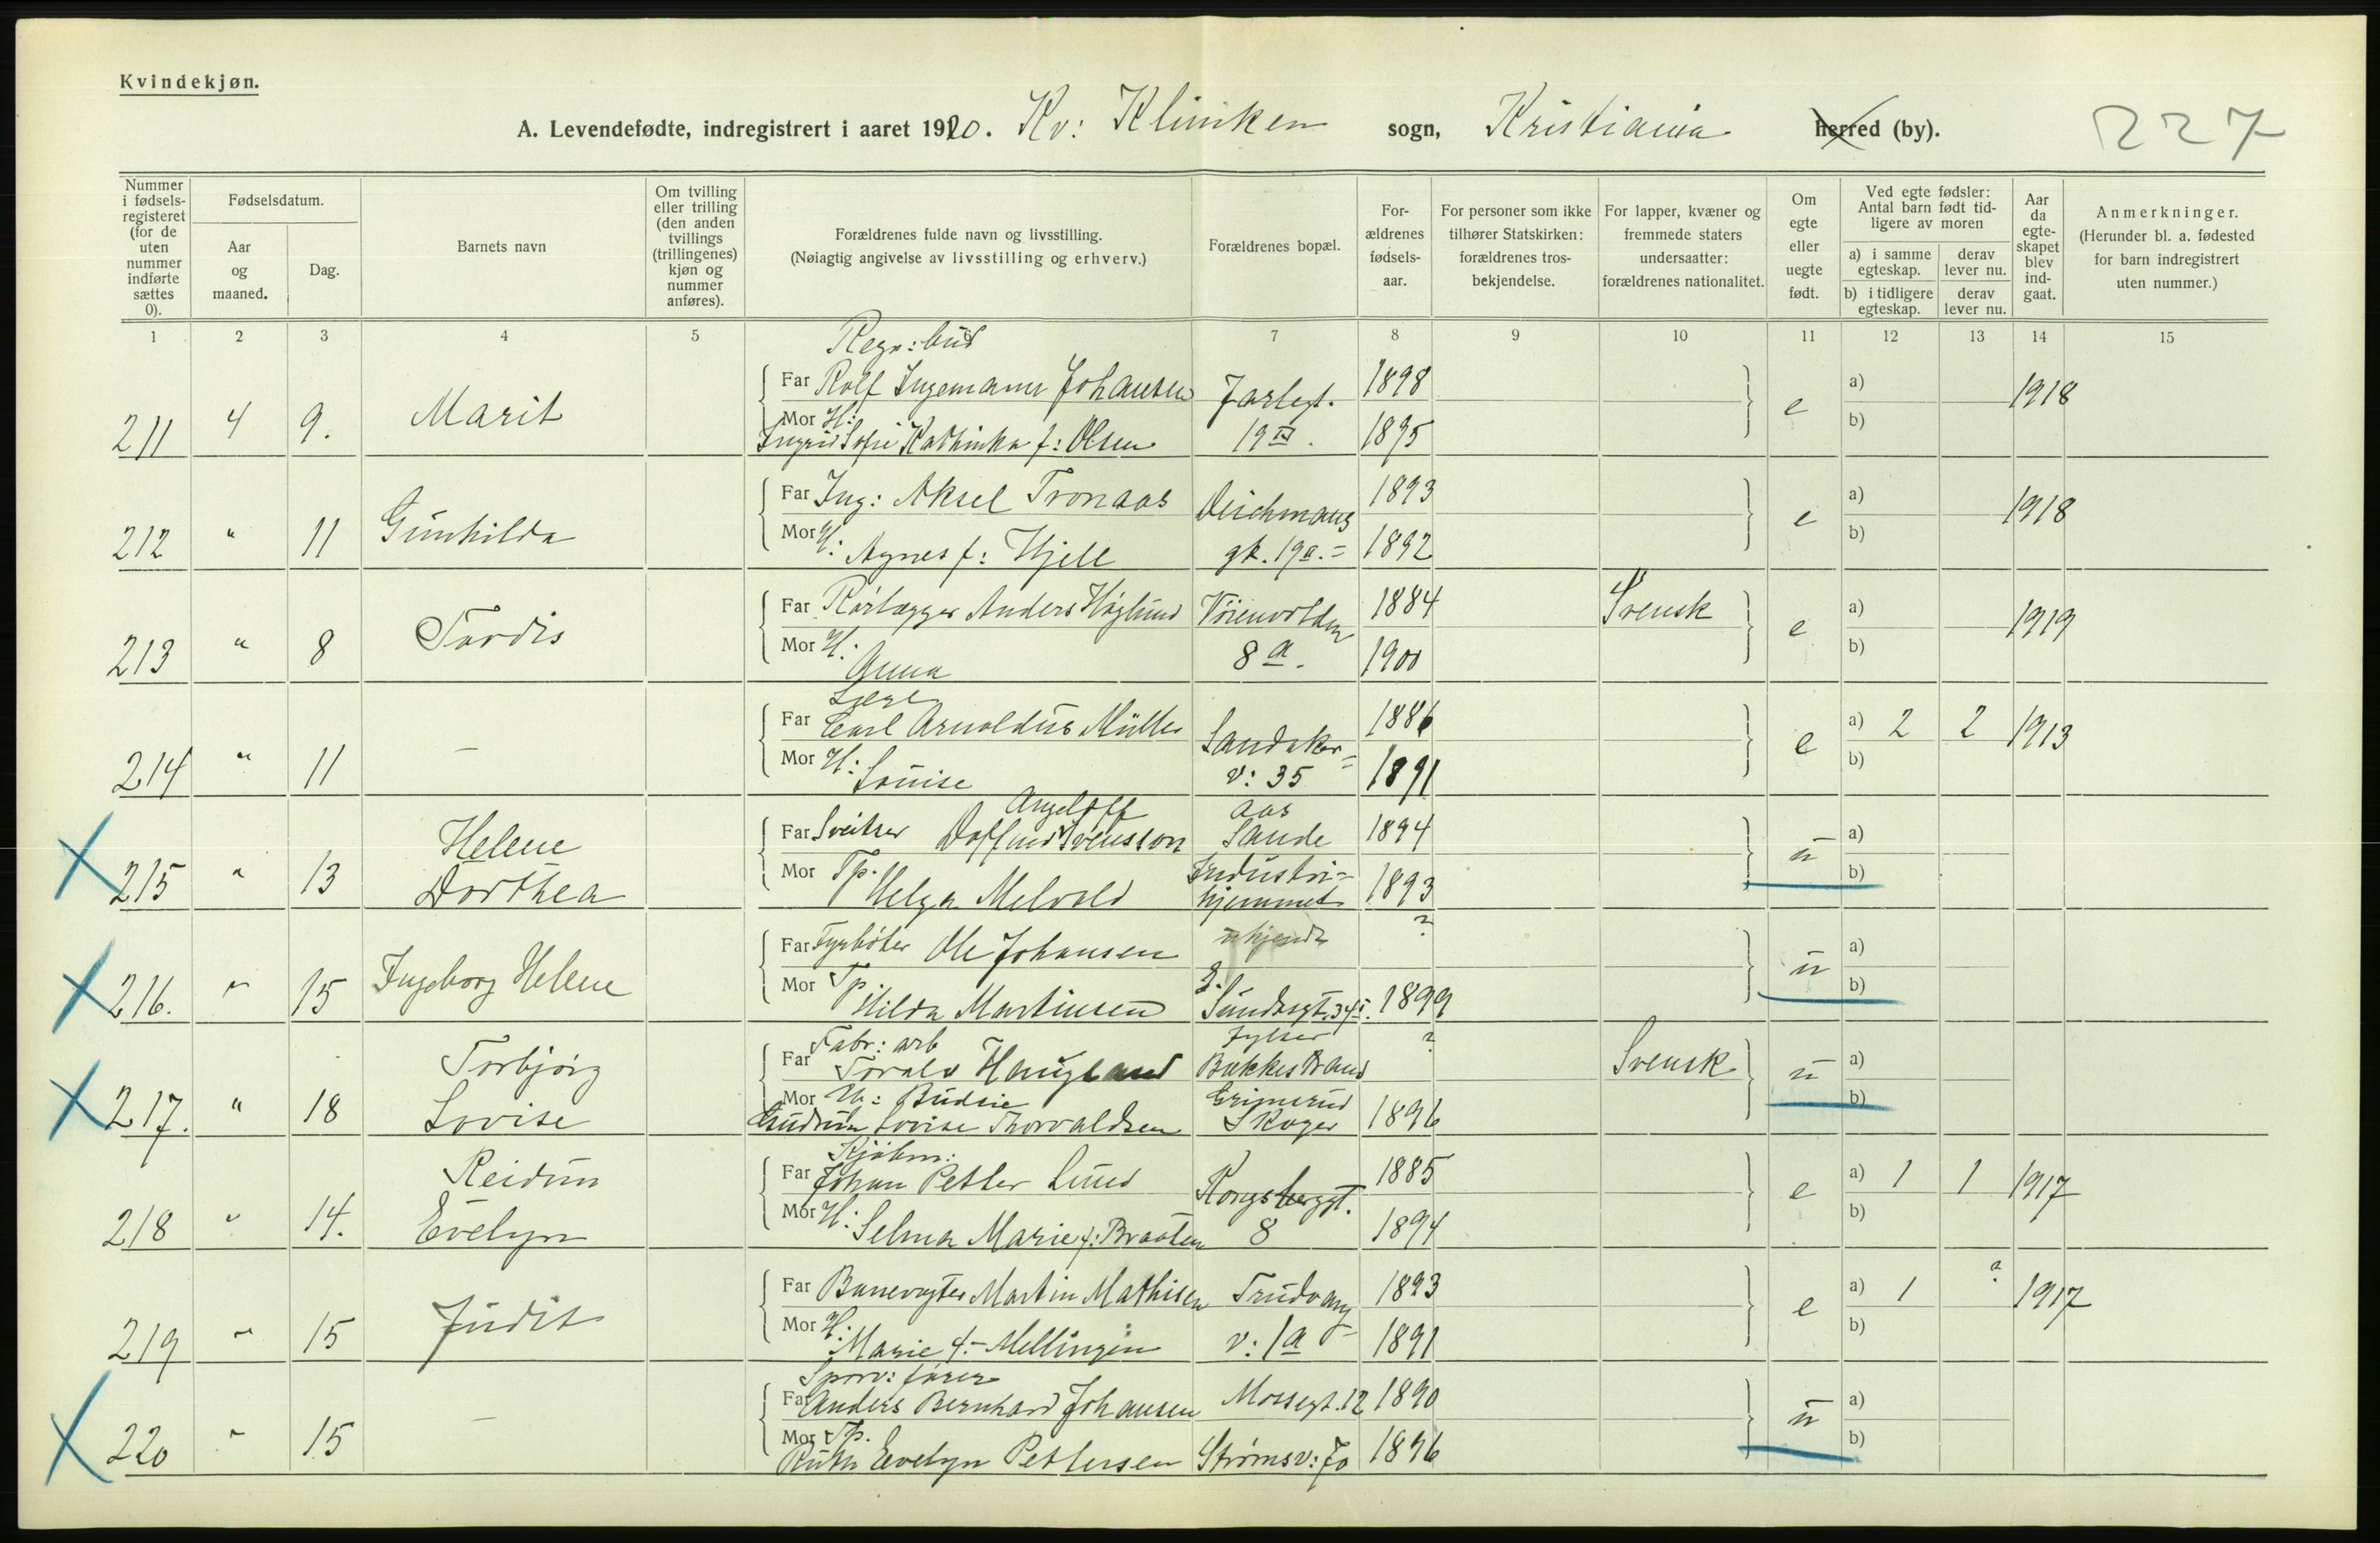 Kvindekjøn.
A. Levendefødte, indregistrert i aaret 1920. Kv: Kliniken sogn, Kristiania herred (by). 227
Nummer i fødsels-registeret (for de uten nummer indførte sættes 0).
Fødselsdatum.
Aar og maaned.
Dag.
Barnets navn
Om tvilling eller trilling (den anden tvillings (trillingenes) kjøn og nummer anføres).
Forældrenes fulde navn og livsstilling.
(Nøiagtig angivelse av livsstilling og erhverv.)
Forældrenes bopæl.
For-ældrenes fødsels-aar.
For personer som ikke tilhører Statskirken: forældrenes tros-bekjendelse.
For lapper, kvæner og fremmede staters undersaatter: forældrenes nationalitet.
Om egte eller uegte født.
Ved egte fødsler: Antal barn født tid-ligere av moren
a) i samme egteskap.
derav lever nu.
b) i tidligere egteskap.
derav lever nu.
Aar da egte-skapet blev ind-gaat.
Anmerkninger.
(Herunder bl. a. fødested for barn indregistrert uten nummer.)
1 2 3 4 5 6 7 8 9 10 11 12 13 14 15
Regn: bud
Far Rolf Ingemann Johansen Jarlegt. 1898 a) 1918
211 4 9. Marit e
Mor H: Ingrid Sofie Kathinka f: Olsen 19 IV. 1895 b)
Far Ing: Aksel Tronaas Deichmans 1893 a) 1918
212 " 11 Gunhilda e
Mor H: Agnes f: Hjell gt. 19a.= 1892 b)
Far Rørlægger Anders Höglund Vøienvolden 1884 Svensk a) 1919
213 " 8 Tordis e
Mor H: Anna 8a. 1900 b)
Far Carl Arnoldus Müller Sandaker= 1886 a) 2 2 1913
214 " 11 — e
Mor H: Louise v: 35 1891 b)
Angeloff Aas
Far Sveitser Svensson Sande 1894 a)
215 " 13 Helene Dorthea u
Mor Tp. Helga Melvold Industri= hjemmet 1893 b)
Far Fyrbøter Ole Johansen ukjendt ? a)
216. " 15 Ingeborg Helene u
Mor Tp. Hilda Martinsen Sundsgt. 34 I. 1899 b)
Fabr: arb
Far Toralv Haugland ? Svensk a)
217. " 18 Torbjørg Lovise u
Mor U: Budeie Gudrun Lovise Thorvaldsen Skoger 1896 b)
Kjøbm:
Far Johan Petter Lund Kongsberggt. 1885 a) 1 1 1917
218 " 14. Reidun Evelyn e
Mor H: Selma Marie f: Braaten 8 1894 b)
Far Banevogter Martin Mathisen Trudvang 1893 a) 1 ? 1917
219 " 15 Judit e
Mor H: Marie f:- Mellingen v: 1a 1891 b)
Sporv: fører
Far Anders Bernhard Johansen Mossegt. 12 1890 a)
220 " 15 — u
Mor Tp. Ruth Evelyn Pettersen Strømsv: 70 1896 b)